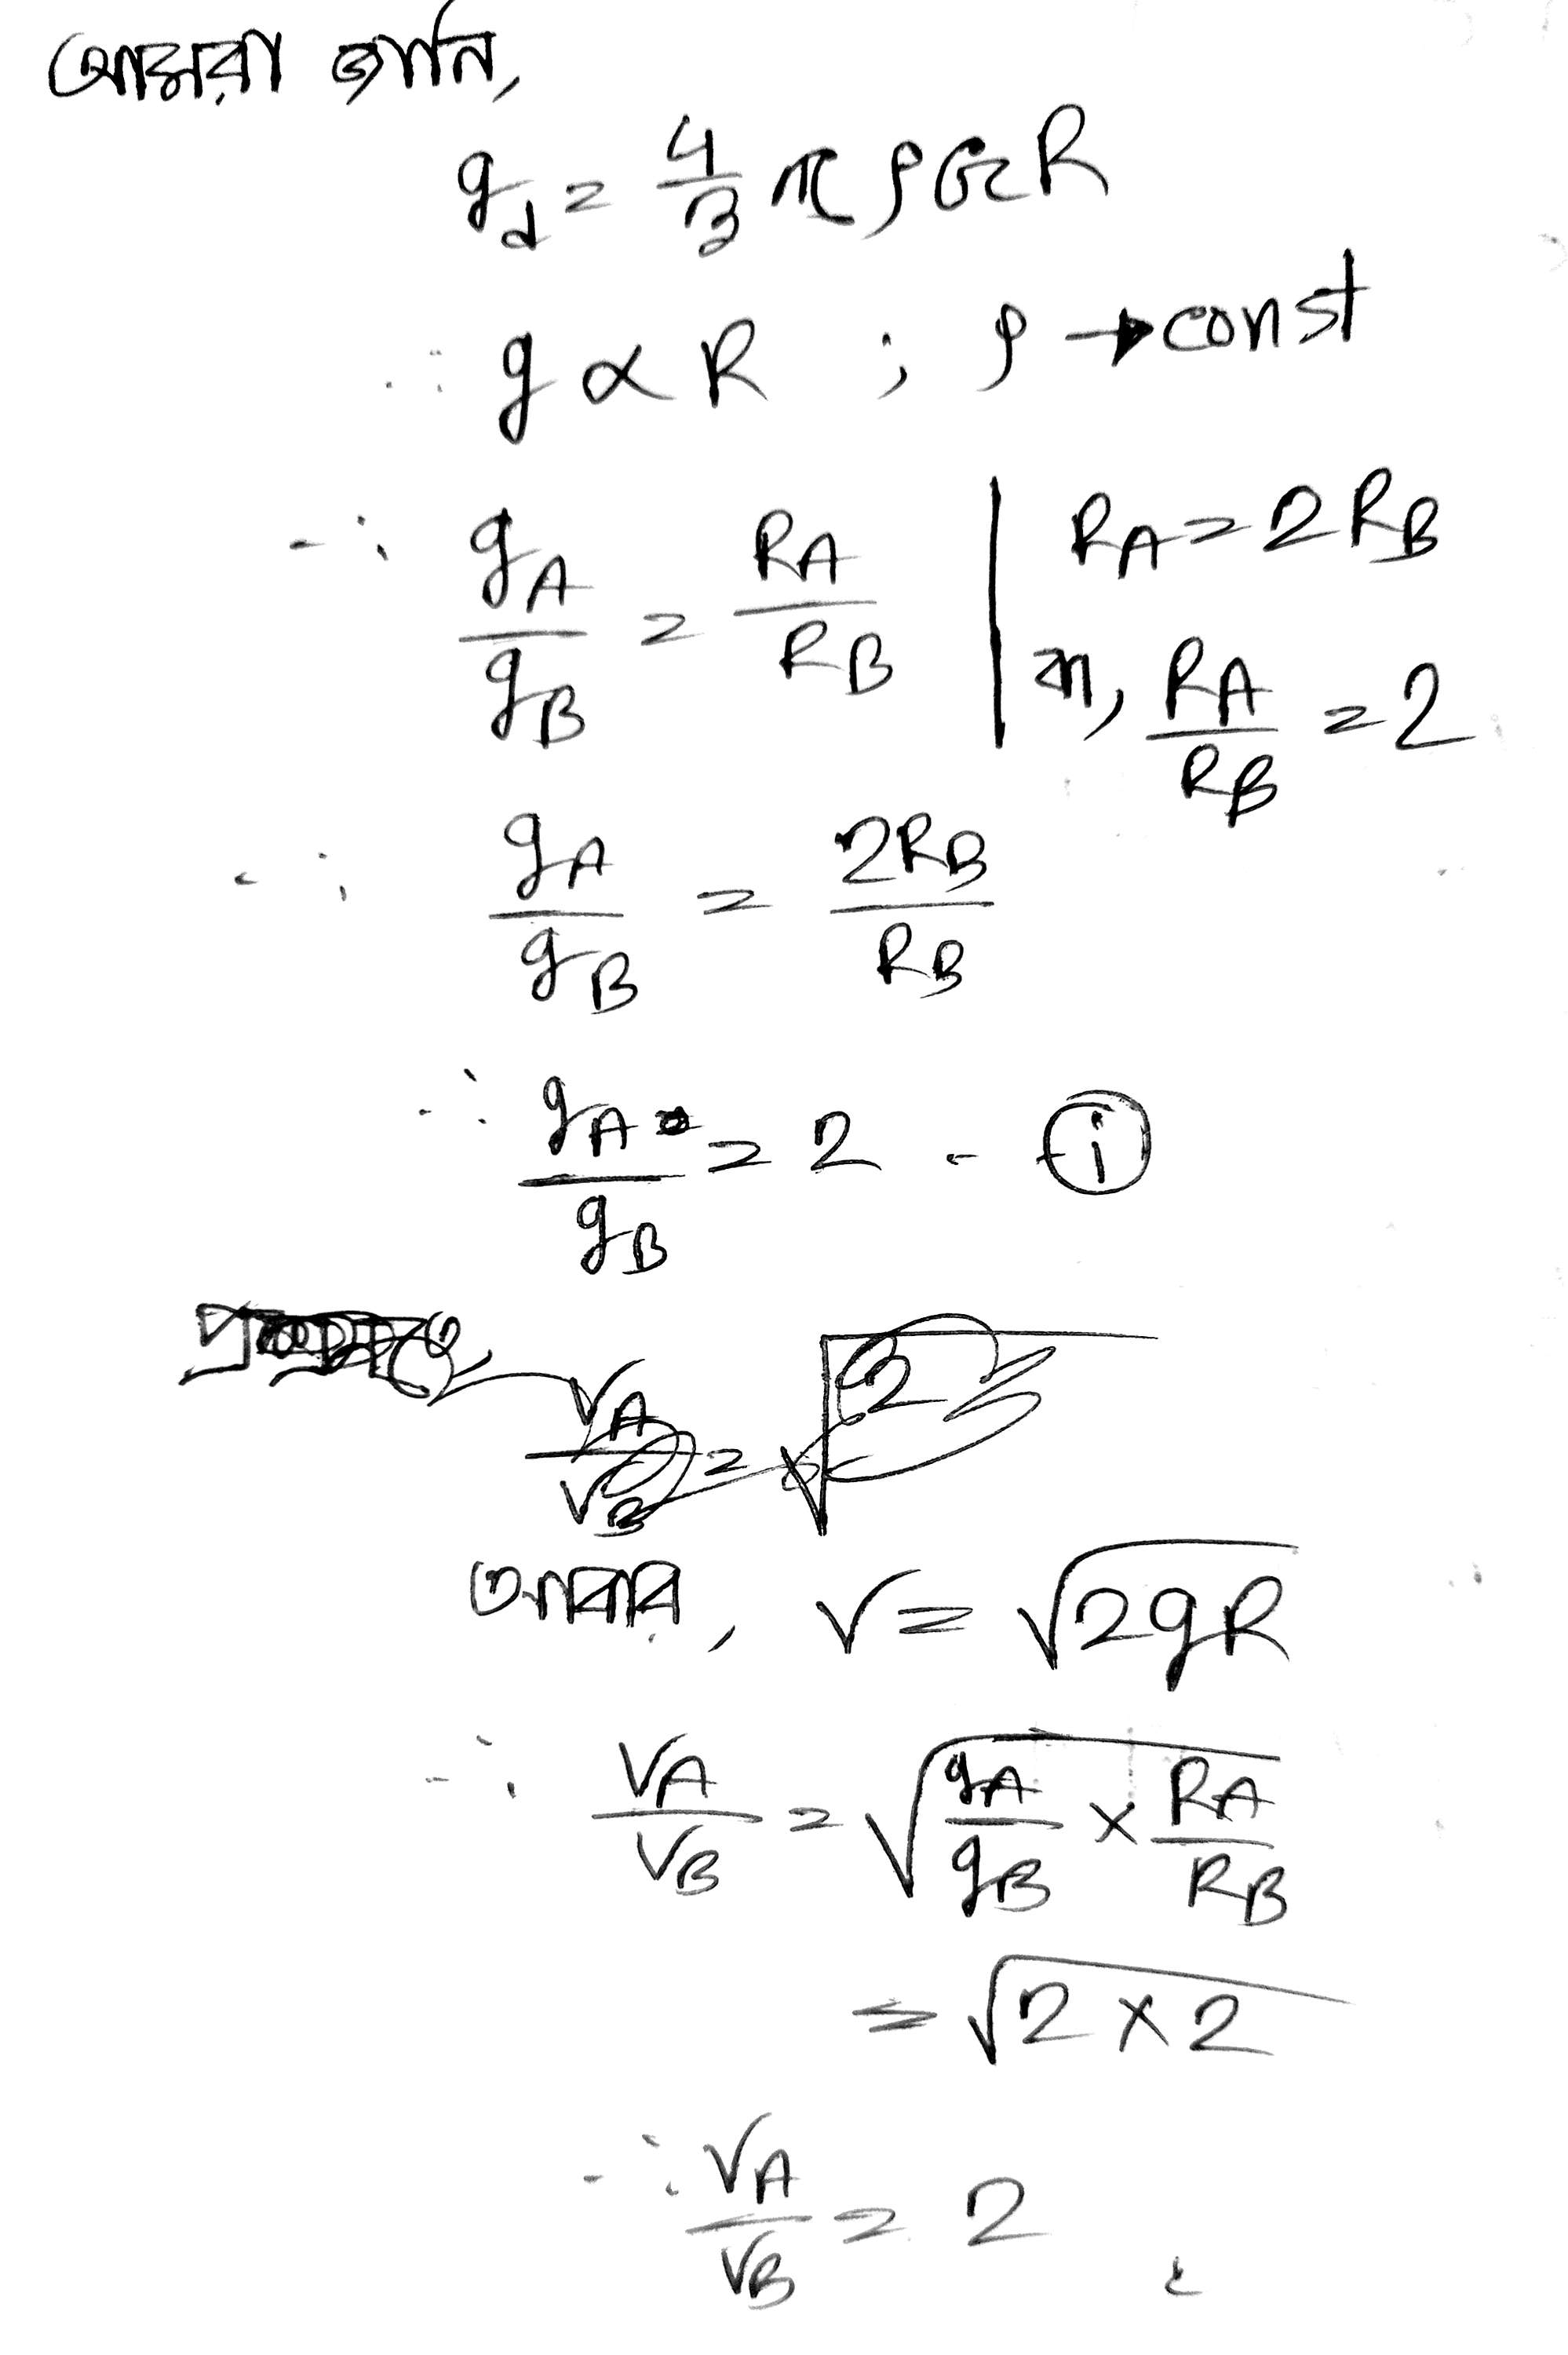 আমরা জানি,
g_d = 4/3 π ρ G R
∴ g ∝ R ; ρ → const
∴ g_A/g_B = R_A/R_B | R_A = 2R_B
বা, R_A/R_B = 2
∴ g_A/g_B = 2R_B/R_B
∴ g_A/g_B = 2 - (i)
V_A/V_B = √2
আবার, V = √(2gR)
∴ V_A/V_B = √(g_A/g_B × R_A/R_B)
= √(2 × 2)
∴ V_A/V_B = 2